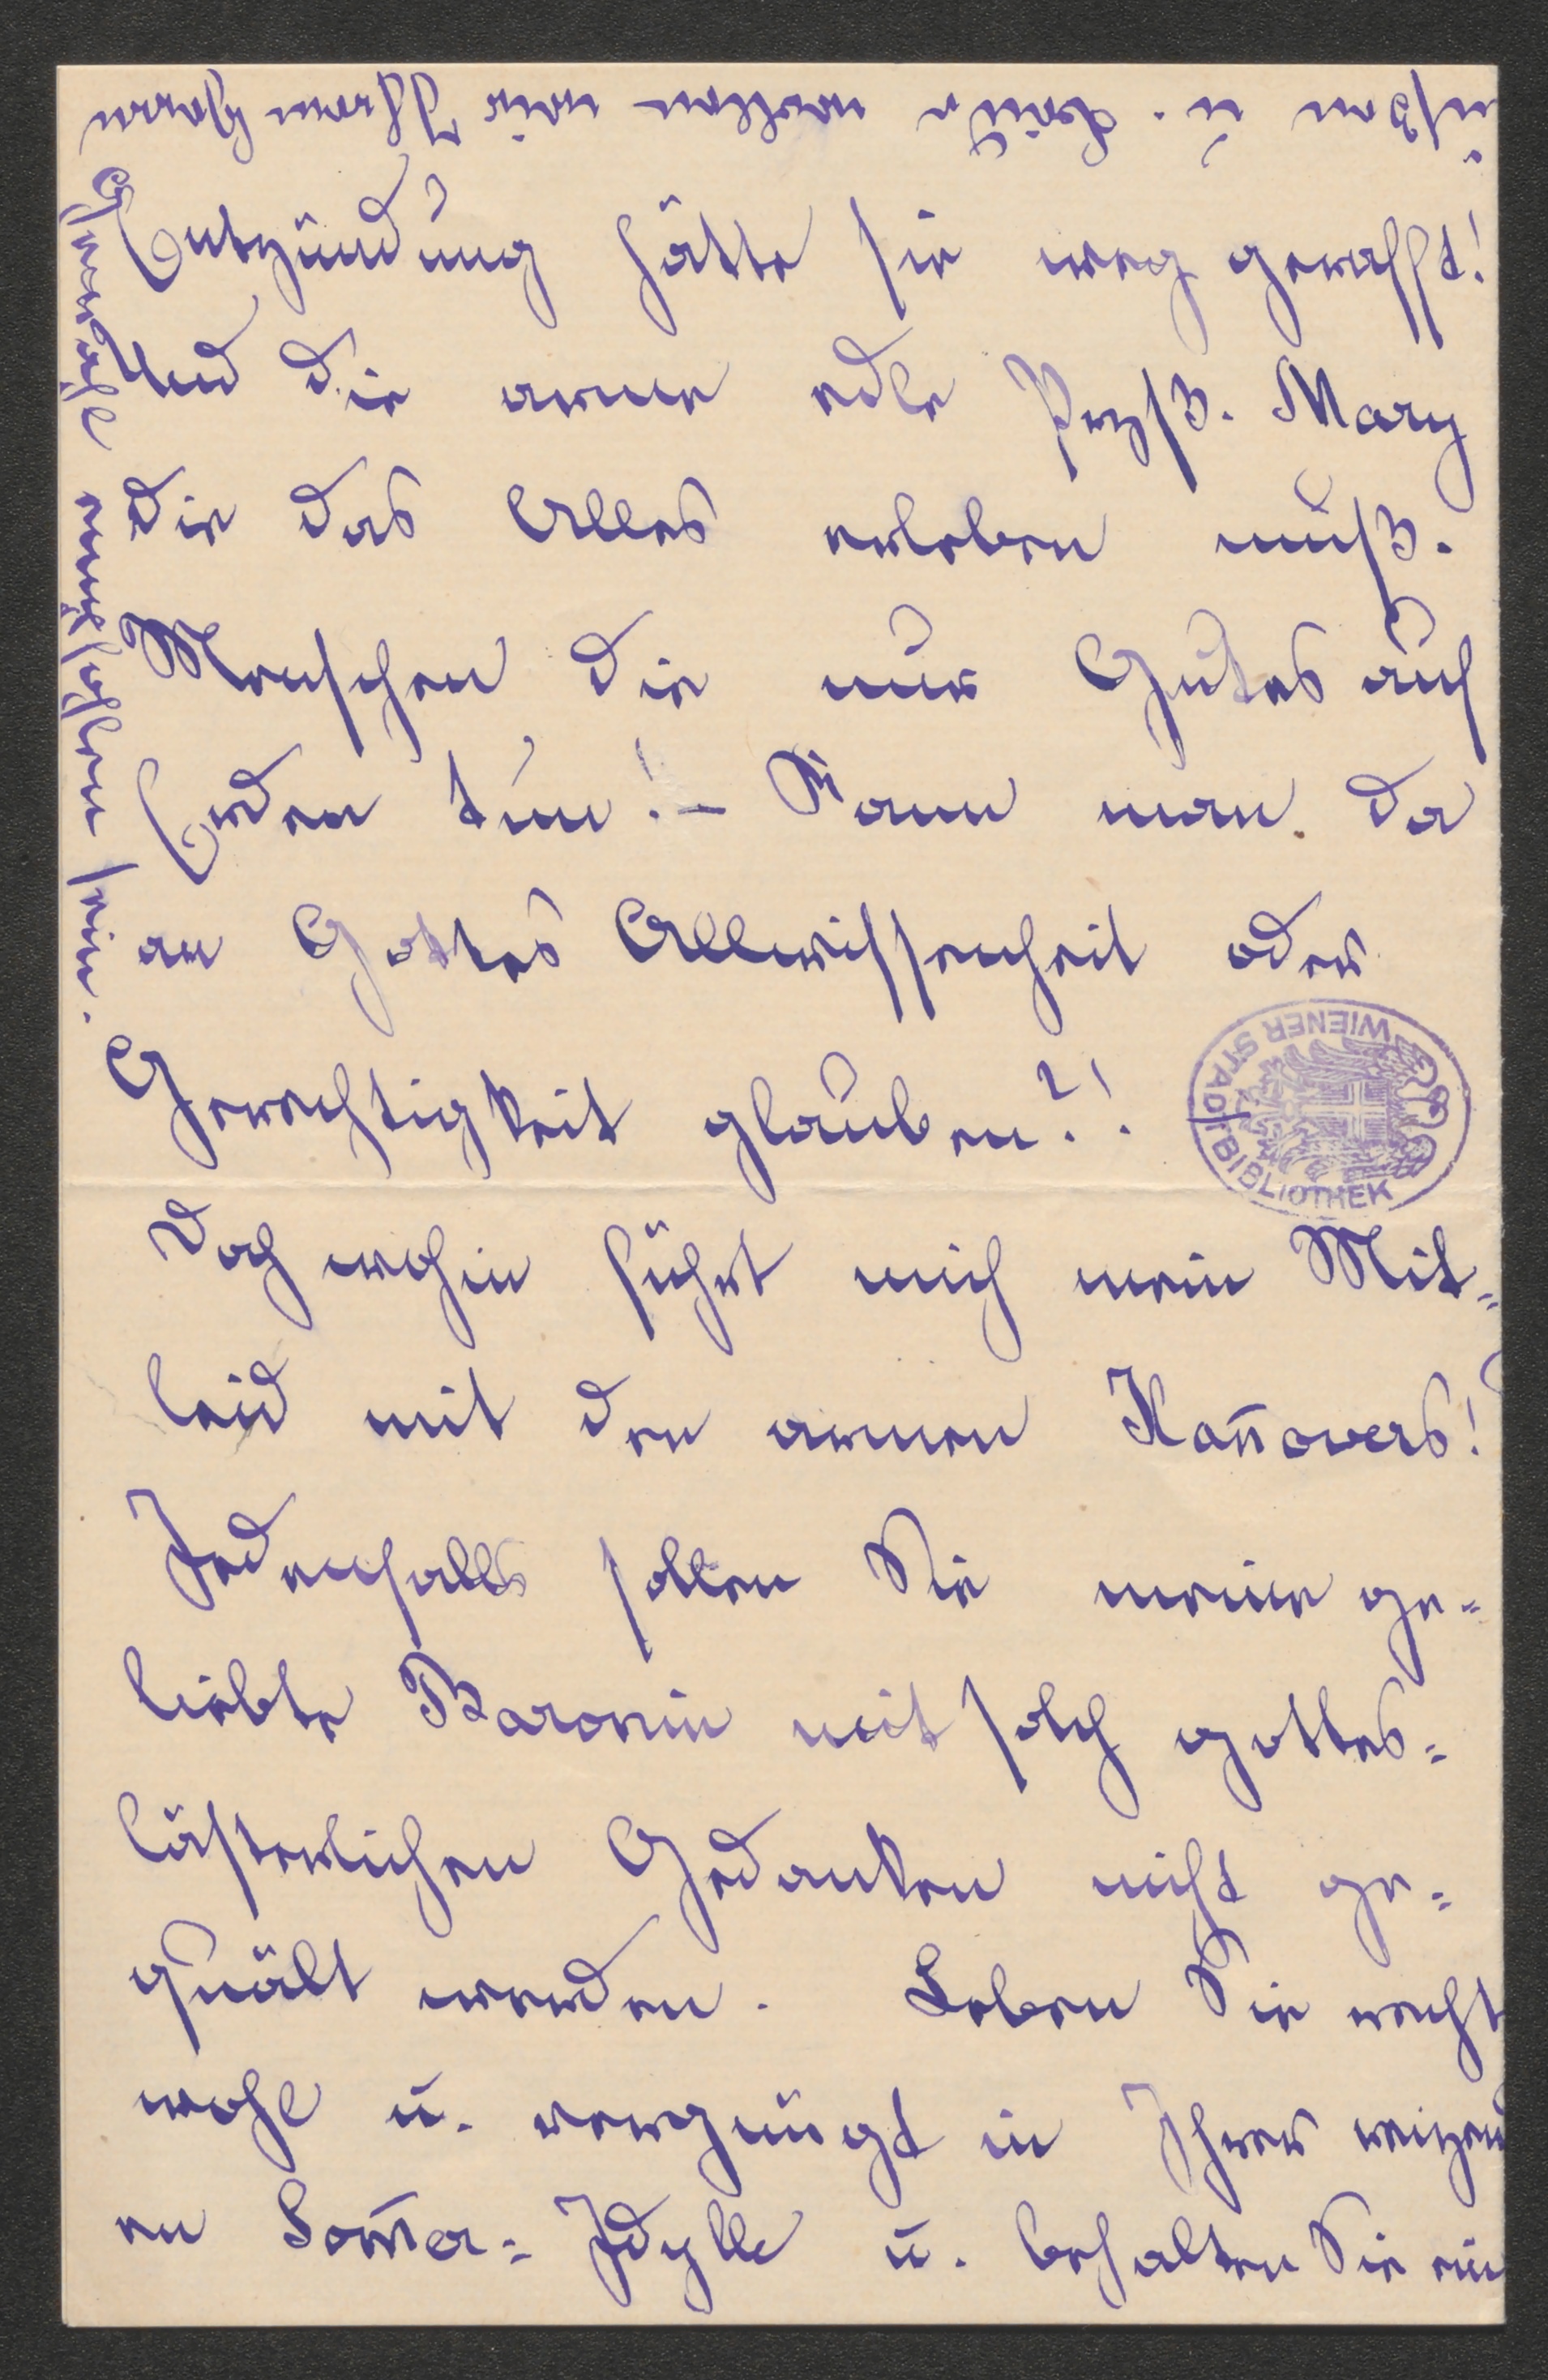 Entzündung hätte sie weg gerafft!
Und die arme edle Przß. Mary
die das Alles erleben muß.
Menschen die nur Gutes auf
Erden tun! – Kann man da
an Gottes Allwissenheit oder
Gerechtigkeit glauben?!
Doch wohin führt mich mein Mit=
leid mit den armen Han̄overs!
Jedenfalls sollen Sie meine ge=
liebte Baronin mit solch gottes=
lästerlichen Gedanken nicht ge=
quält werden. Leben Sie recht
wohl u. vergnügt in Ihrer reizend
en Som̄er=Idylle u. behalten Sie ein
u. wollen wir Ihrem Herrn
Gemahl empfohlen sein.
WIENER STADTBIBLIOTHEK